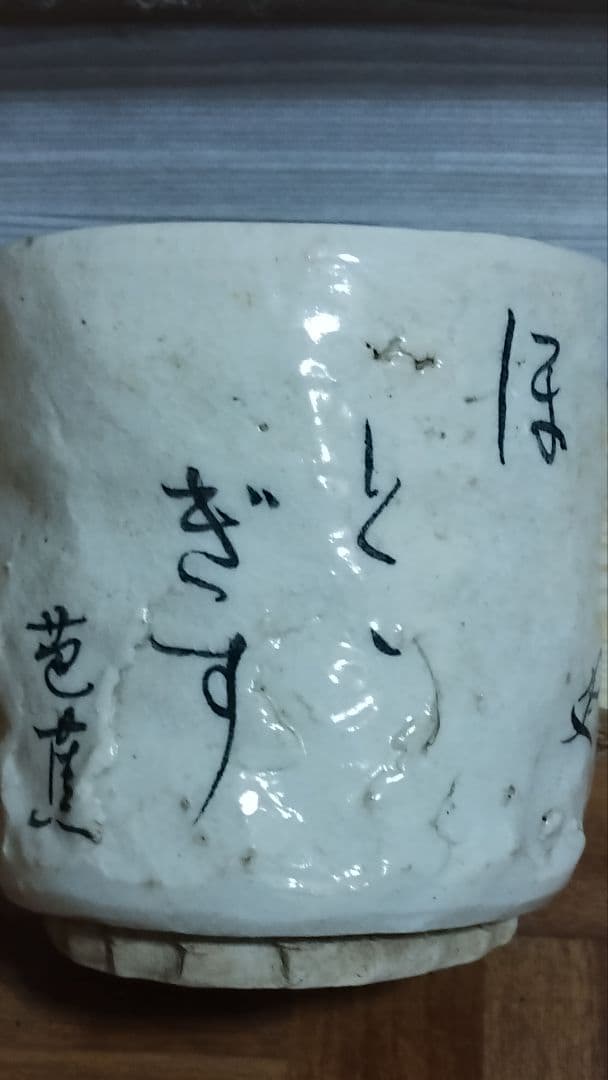 ほ
とゝ
ぎす
芭蕉